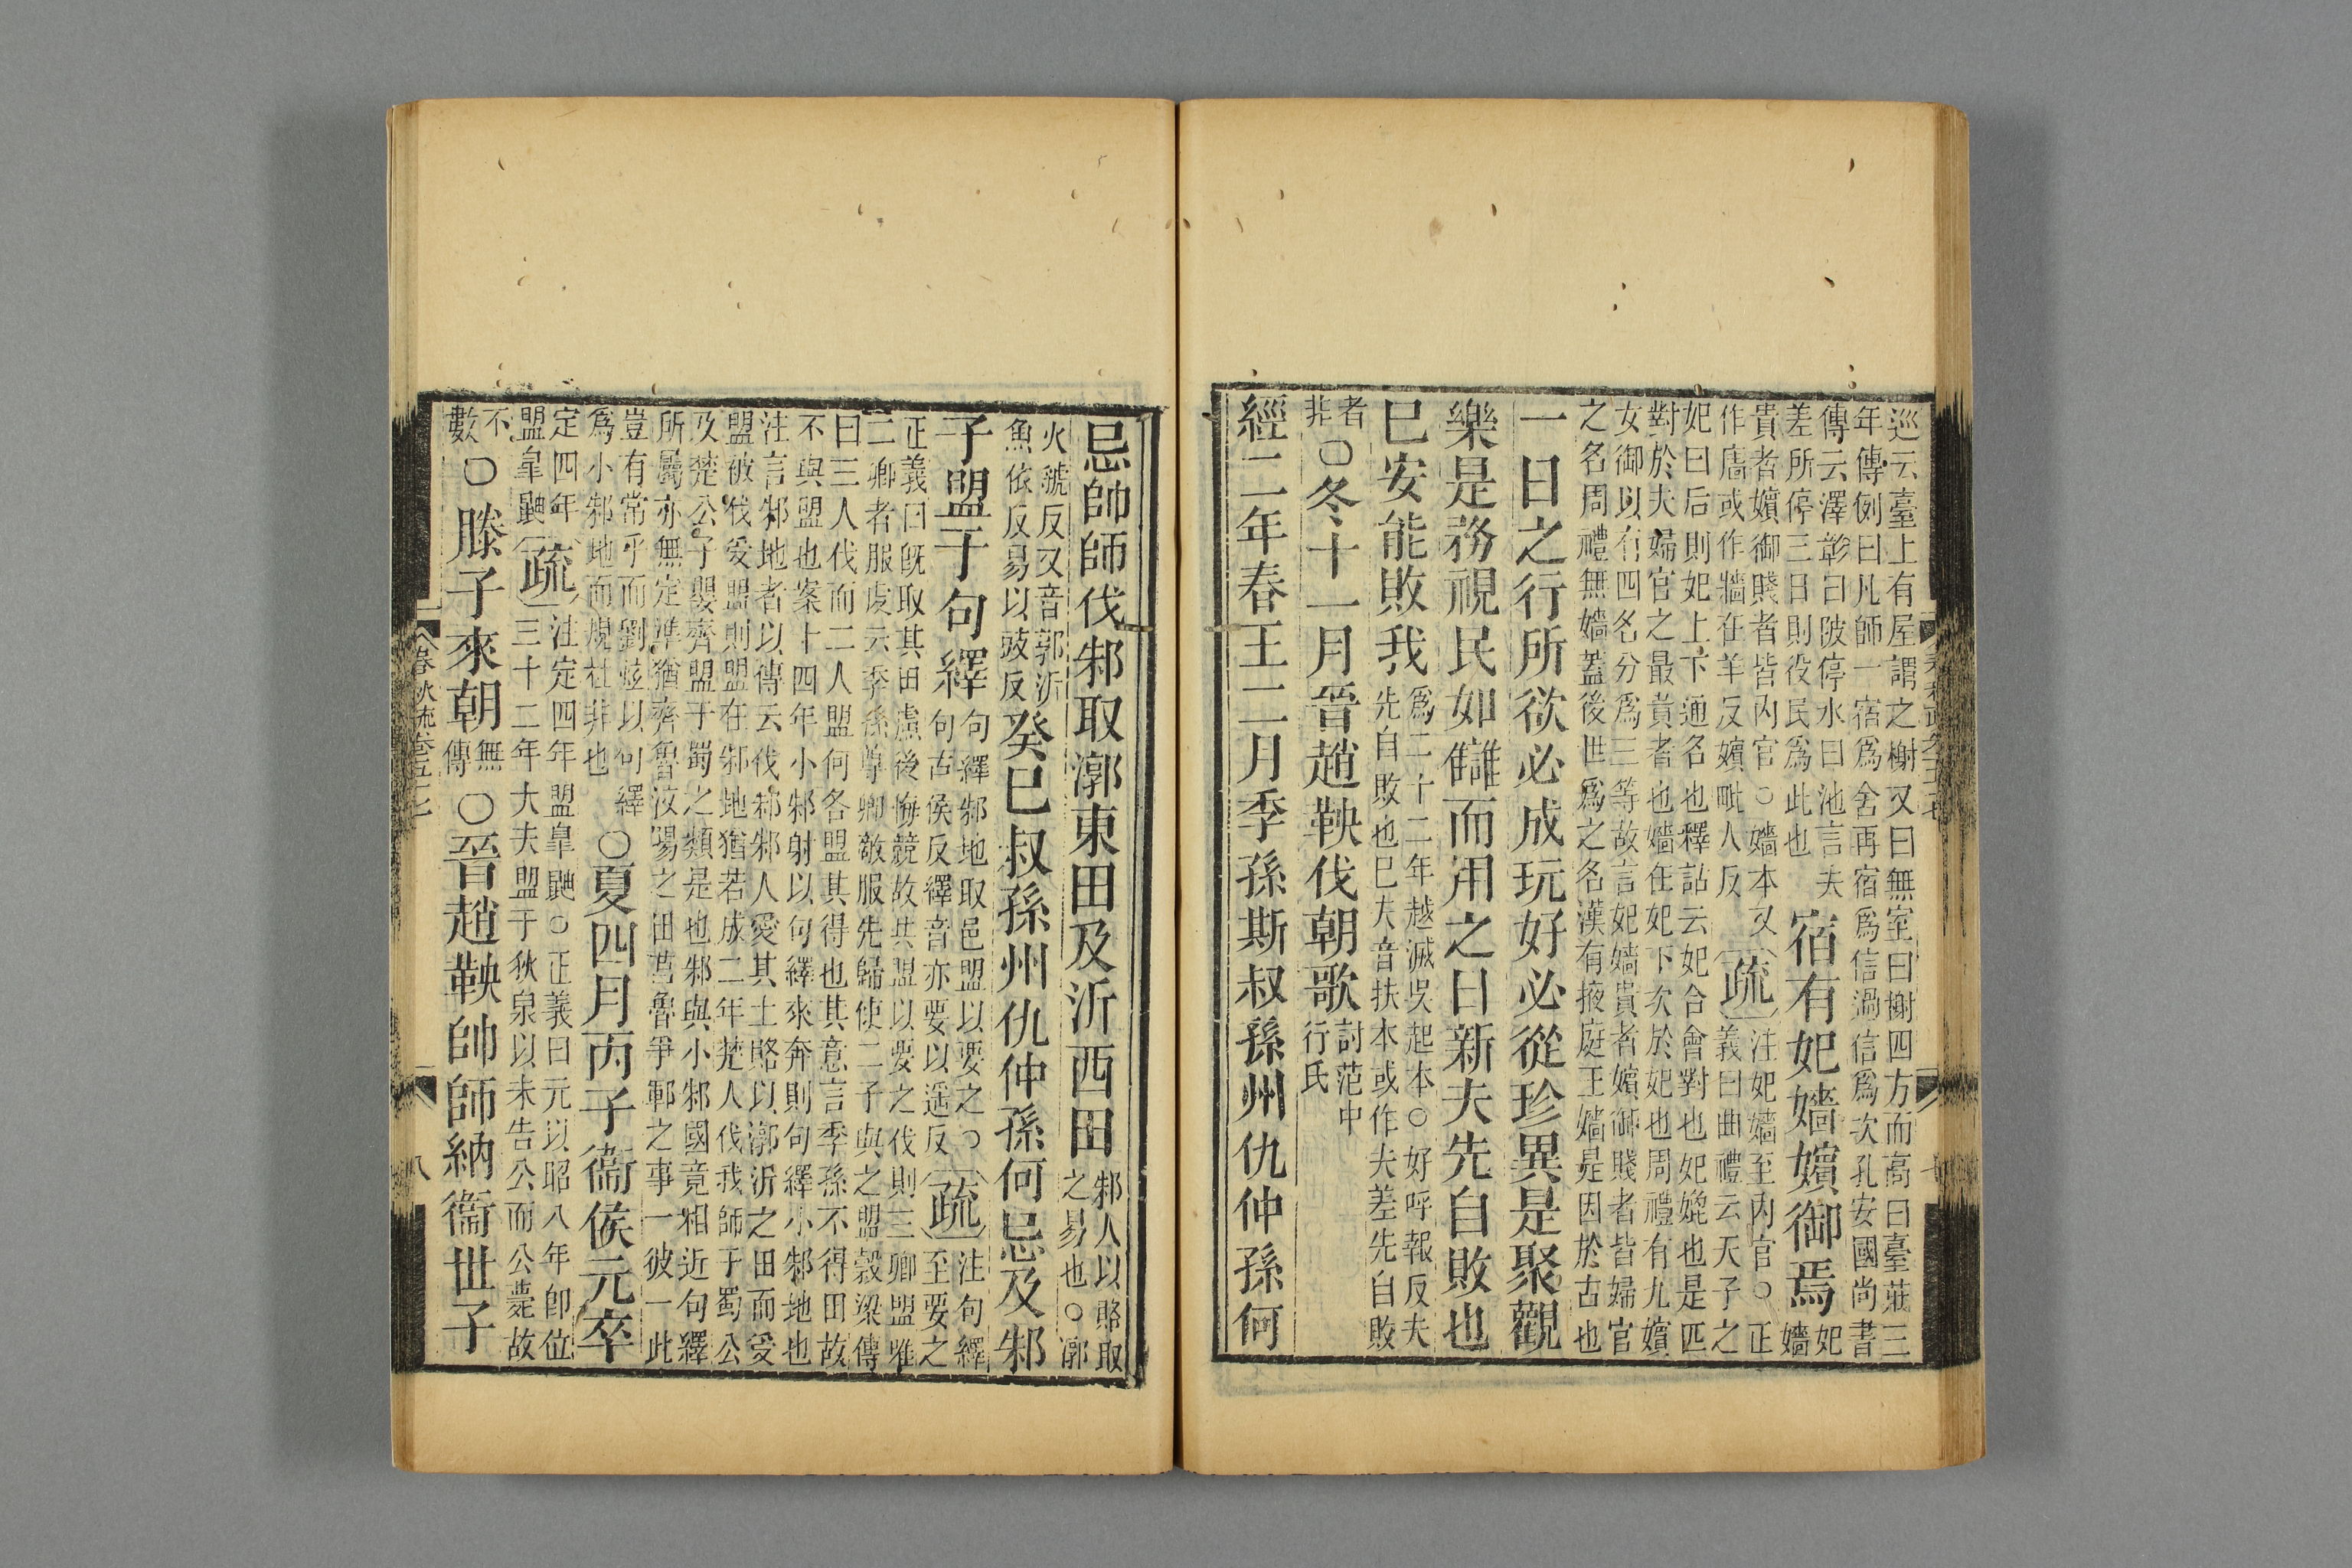 巡云臺上有屋謂之榭又曰無室曰榭四方而高曰臺莊三
年傳例曰凡師一宿爲舍再宿爲信過信爲次孔安國尚書
傳云澤彰曰陂停水曰池言夫
差所停三日則役民爲此也
宿有妃嬙嬪御焉
妃
嬙
貴者嬪御賤者皆內官○嬙本又
作廧或作牆在羊反嬪毗人反
疏
注妃嬙至內官○正
義曰曲禮云天子之
妃曰后則妃上下通名也釋詁云妃合會對也妃媲也是匹
對於夫婦官之最貴者也嬙在妃下次於妃也周禮有九嬪
女御以有四名分爲三等故言妃嬙貴者嬪御賤者皆婦官
之名周禮無嬙蓋後世爲之名漢有掖庭王嬙是因於古也
一日之行所欲必成玩好必從珍異是聚觀
樂是務視民如讎而用之日新夫先自敗也
已安能敗我
爲二十二年越滅吳起本○好呼報反夫
先自敗也已夫音扶本或作夫差先自敗
者
非
○冬十一月晉趙鞅伐朝歌
討范中
行氏
經二年春王二月季孫斯叔孫州仇仲孫何
忌帥師伐邾取漷東田及沂西田
邾人以賂取
之易也○漷
火虢反又音郭沂
魚依反易以豉反
癸巳叔孫州仇仲孫何忌及邾
子盟于句繹
句繹邾地取邑盟以要之○
句古侯反繹音亦要以遥反
疏
注句繹
至要之
正義曰旣取其田慮後悔競故共盟以要之伐則三卿盟唯
二卿者服虔云季孫尊卿敵服先歸使二子與之盟穀梁傳
曰三人伐而二人盟何各盟其得也其意言季孫不得田故
不與盟也案十四年小邾射以句繹來奔則句繹小邾地也
注言邾地者以傳云伐邾邾人愛其土賂以漷沂之田而受
盟被伐受盟則盟在邾地猶若成二年楚人伐我師于蜀公
及楚公子嬰齊盟于蜀之類是也邾與小邾國竟相近句繹
所屬亦無定準猶齊魯汶陽之田莒魯爭鄆之事一彼一此
豈有常乎而劉炫以句繹
爲小邾地而規杜非也
○夏四月丙子衞侯元卒
定四年盟臯鼬○正義曰元以昭八年卽位
盟臯鼬
疏
注定四年
三十二年大夫盟于狄泉以未告公而公薨故
不
數
○滕子來朝
無
傳
○晉趙鞅帥師納衞世子
春秋疏卷五十七
八